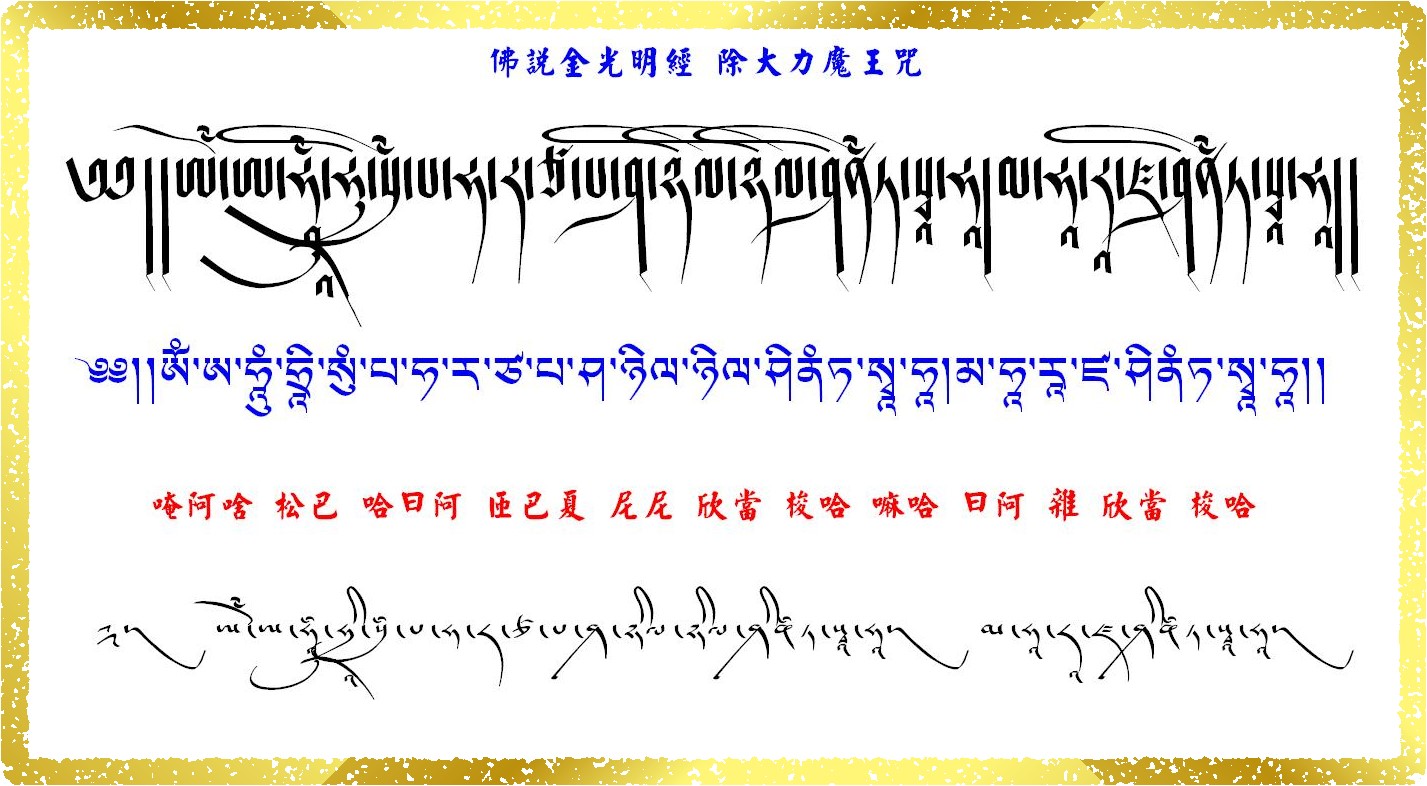 佛説金光明經 除大力魔王咒
༄༅།།ཨོཾ་ཨ་ཧཱུཾ་ཧྲཱི་སུཾ་པ་ཧ་ར་ཙ་པ་ཤ་ཉིལ་ཉིལ་ཤིནཾཏ་སྭཱ་ཧཱ།མ་ཧཱ་རཱ་ཛ་ཤིནཾཏ་སྭཱ་ཧཱ།།
༄༅།།ཨོཾ་ཨ་ཧཱུཾ་ཧྲཱི་སུཾ་པ་ཧ་ར་ཙ་པ་ཤ་ཉིལ་ཉིལ་ཤིནཾཏ་སྭཱ་ཧཱ།མ་ཧཱ་རཱ་ཛ་ཤིནཾཏ་སྭཱ་ཧཱ།།
唵阿啥 松巴 哈日阿 匝巴夏 尼尼 欣當 梭哈 嘛哈 日阿 雜 欣當 梭哈
༄༅།།ཨོཾ་ཨ་ཧཱུཾ་ཧྲཱི་སུཾ་པ་ཧ་ར་ཙ་པ་ཤ་ཉིལ་ཉིལ་ཤིནཾཏ་སྭཱ་ཧཱ། མ་ཧཱ་རཱ་ཛ་ཤིནཾཏ་སྭཱ་ཧཱ།